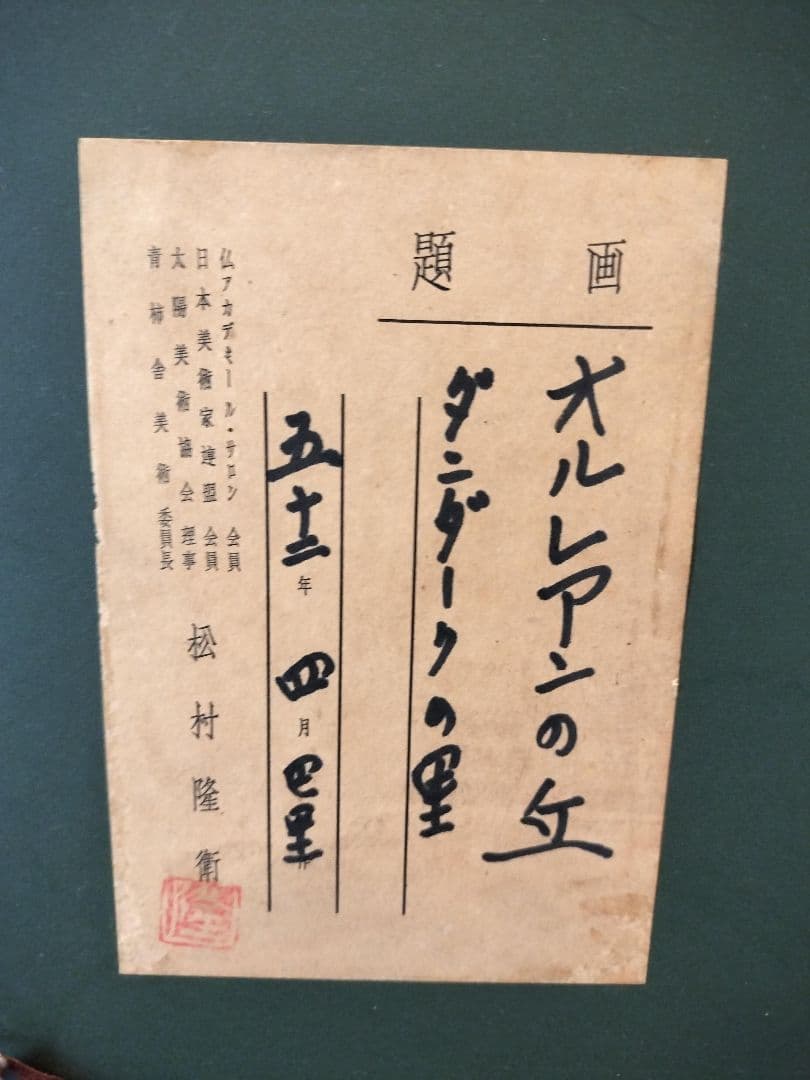 画題
オルレアンの丘
ダンダークの里
五十二年 四月 巴里作
仏アカデミール・サロン 会員
日本美術家連盟 会員
太陽美術協会 理事
青柿舎美術 委員長
松村隆衛